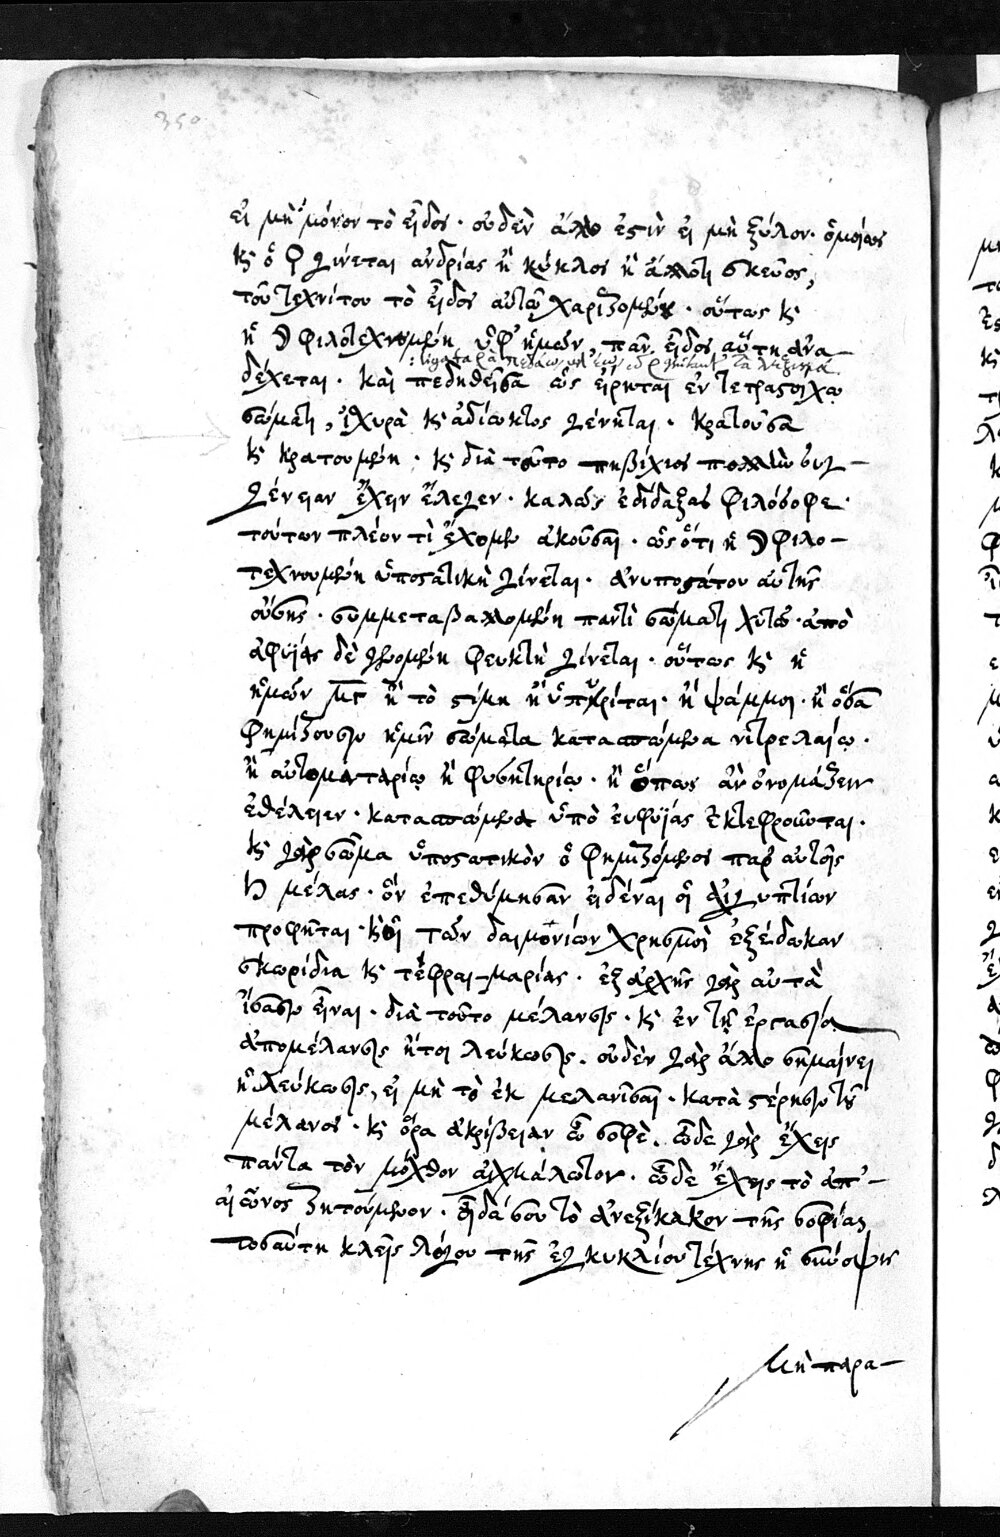 350
εἰ μὴ μόνον τὸ εἶδος · οὐδὲν ἄλλο ἐστὶν εἰ μὴ ξύλον · ὁμοίως
κ ὁ ♀ γίνεται ἀνδρίας ἢ κύκλος ἢ ἄλλοτι σκεῦος,
τοῦ τεχνίτου τὸ εἶδος αὐτῶ χαριζομένου · οὕτως κ
ἡ ☽ φιλοτεχνουμένη ὑφ' ἡμῶν, πᾶν εἶδος αὕτη ἀνα–
δέχεται · καὶ πεδηθεῖσα ὡς εἴρηται ἐν τετραστοίχω
σώματι, ἰχυρὰ κ ἀδίωκτος γένηται · κρατοῦσα
κ κρατουμένη · κ διὰ τοῦτο πηβίχιος πολλὴν συγ–
γένειαν ἔχειν ἔλεγεν · καλῶς ἐδίδαξας φιλόσοφε ·
τούτων πλέον τὶ ἔχομεν ἀκοῦσαι · ὡς ὅτι ἡ ☽ φιλο–
τεχνουμένη ὑποστατικὴ γίνεται · ἀνυποστάτου αὐτῆς
οὔσης · συμμεταβαλλομένη παντὶ σώματι χυτῶ · ἀπὸ
ἀφυΐας δὲ γενομένη φευκτὴ γίνεται · οὕτως κ ἡ
ἡμῶν μς ἢ τὸ στίμη ἢ πυρίται · ἢ ψάμμοι · ἢ ὅσα
φημίζουσιν ἡμῖν σώματα κατασπώμενα νιτρελαίω ·
ἢ αὐτοματαρίω ἢ φυσητηρίω · ἢ ὅπως ἂν ὀνομάζειν
ἐθέλειεν · κατασπώμενα ὑπὸ εὐφυΐας ἐκτεφροῦνται ·
κ γὰρ σῶμα ὑποστατικὸν ὁ φημιζόμενος παρ' αὐτοῖς
♄ μέλας · ὃν ἐπεθύμησαν εἰδέναι οἱ αἰγυπτίων
προφῆται · κ οἱ τῶν δαιμονίων χρησμοὶ ἐξέδωκαν
σκωρίδια κ τέφραι μαρίας · ἐξ ἀρχῆς γὰρ αὐτὰ
ἴσασιν εἶναι · διὰ τοῦτο μέλανσις · κ ἐν τῇ ἐργασίᾳ
ἀπομέλανσις ἤτοι λεύκωσις. οὐδὲν γὰρ ἄλλο σημαίνει
ἡ λεύκωσις, εἰ μὴ τὸ ἐκ μελανῖσαι · κατὰ στέρησιν τοῦ
μέλανος · κ ὅρα ἀκρίβειαν ὦ σοφὲ. ὧδε γὰρ ἔχεις
πάντα τὸν μόχθον αἰχμάλωτον · ὧδε ἔχεις τὸ ἀπ'–
αἰῶνος ζητούμενον · οἶδά σου τὸ ἀνεξίκακον τῆς σοφίας
τοσαύτη κλεὶς λόγου τῆς ἐγκυκλίου τέχνης ἡ σύνοψις
μὴ παρα–